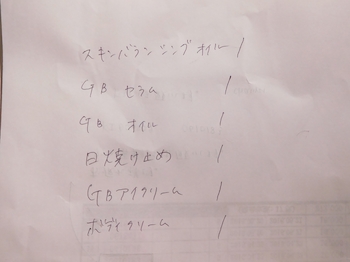 スキンバランシングオイル /
GB セラム /
GB オイル /
日焼け止め /
GBアイクリーム /
ボディクリーム /